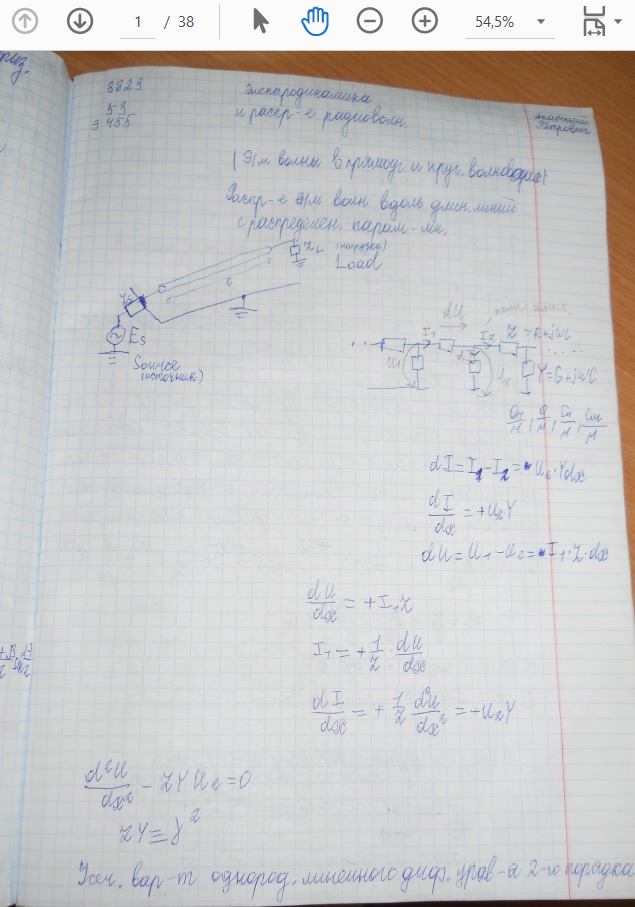 1 / 38
54,5%
3323
53
э 455
Электродинамика
и распр-е радиоволн.
Анатолий
Петрович
(Э/м волны в прямоуг. и круг. волноводах)
Распр-е э/м волн вдоль длин. линий
с распределен. парам-ми.
Z_L (нагрузка)
Load
E_s
Source
(источник)
dU
I₁
I₂
Z = R+jωL
Y=G+jωC
U₁
U₂
dI = I₁ - I₂ = U₂·Ydx
dI/dx = +U₂Y
dU = U₁ - U₂ = I₁·Z·dx
dU/dx = +I₁Z
I₁ = + 1/Z · dU/dx
dI/dx = + 1/Z d²U/dx² = +U₂Y
d²U/dx² - ZYU₂ = 0
ZY ≡ γ²
Усеч. вар-т однород. линейного диф. урав-я 2-го порядка